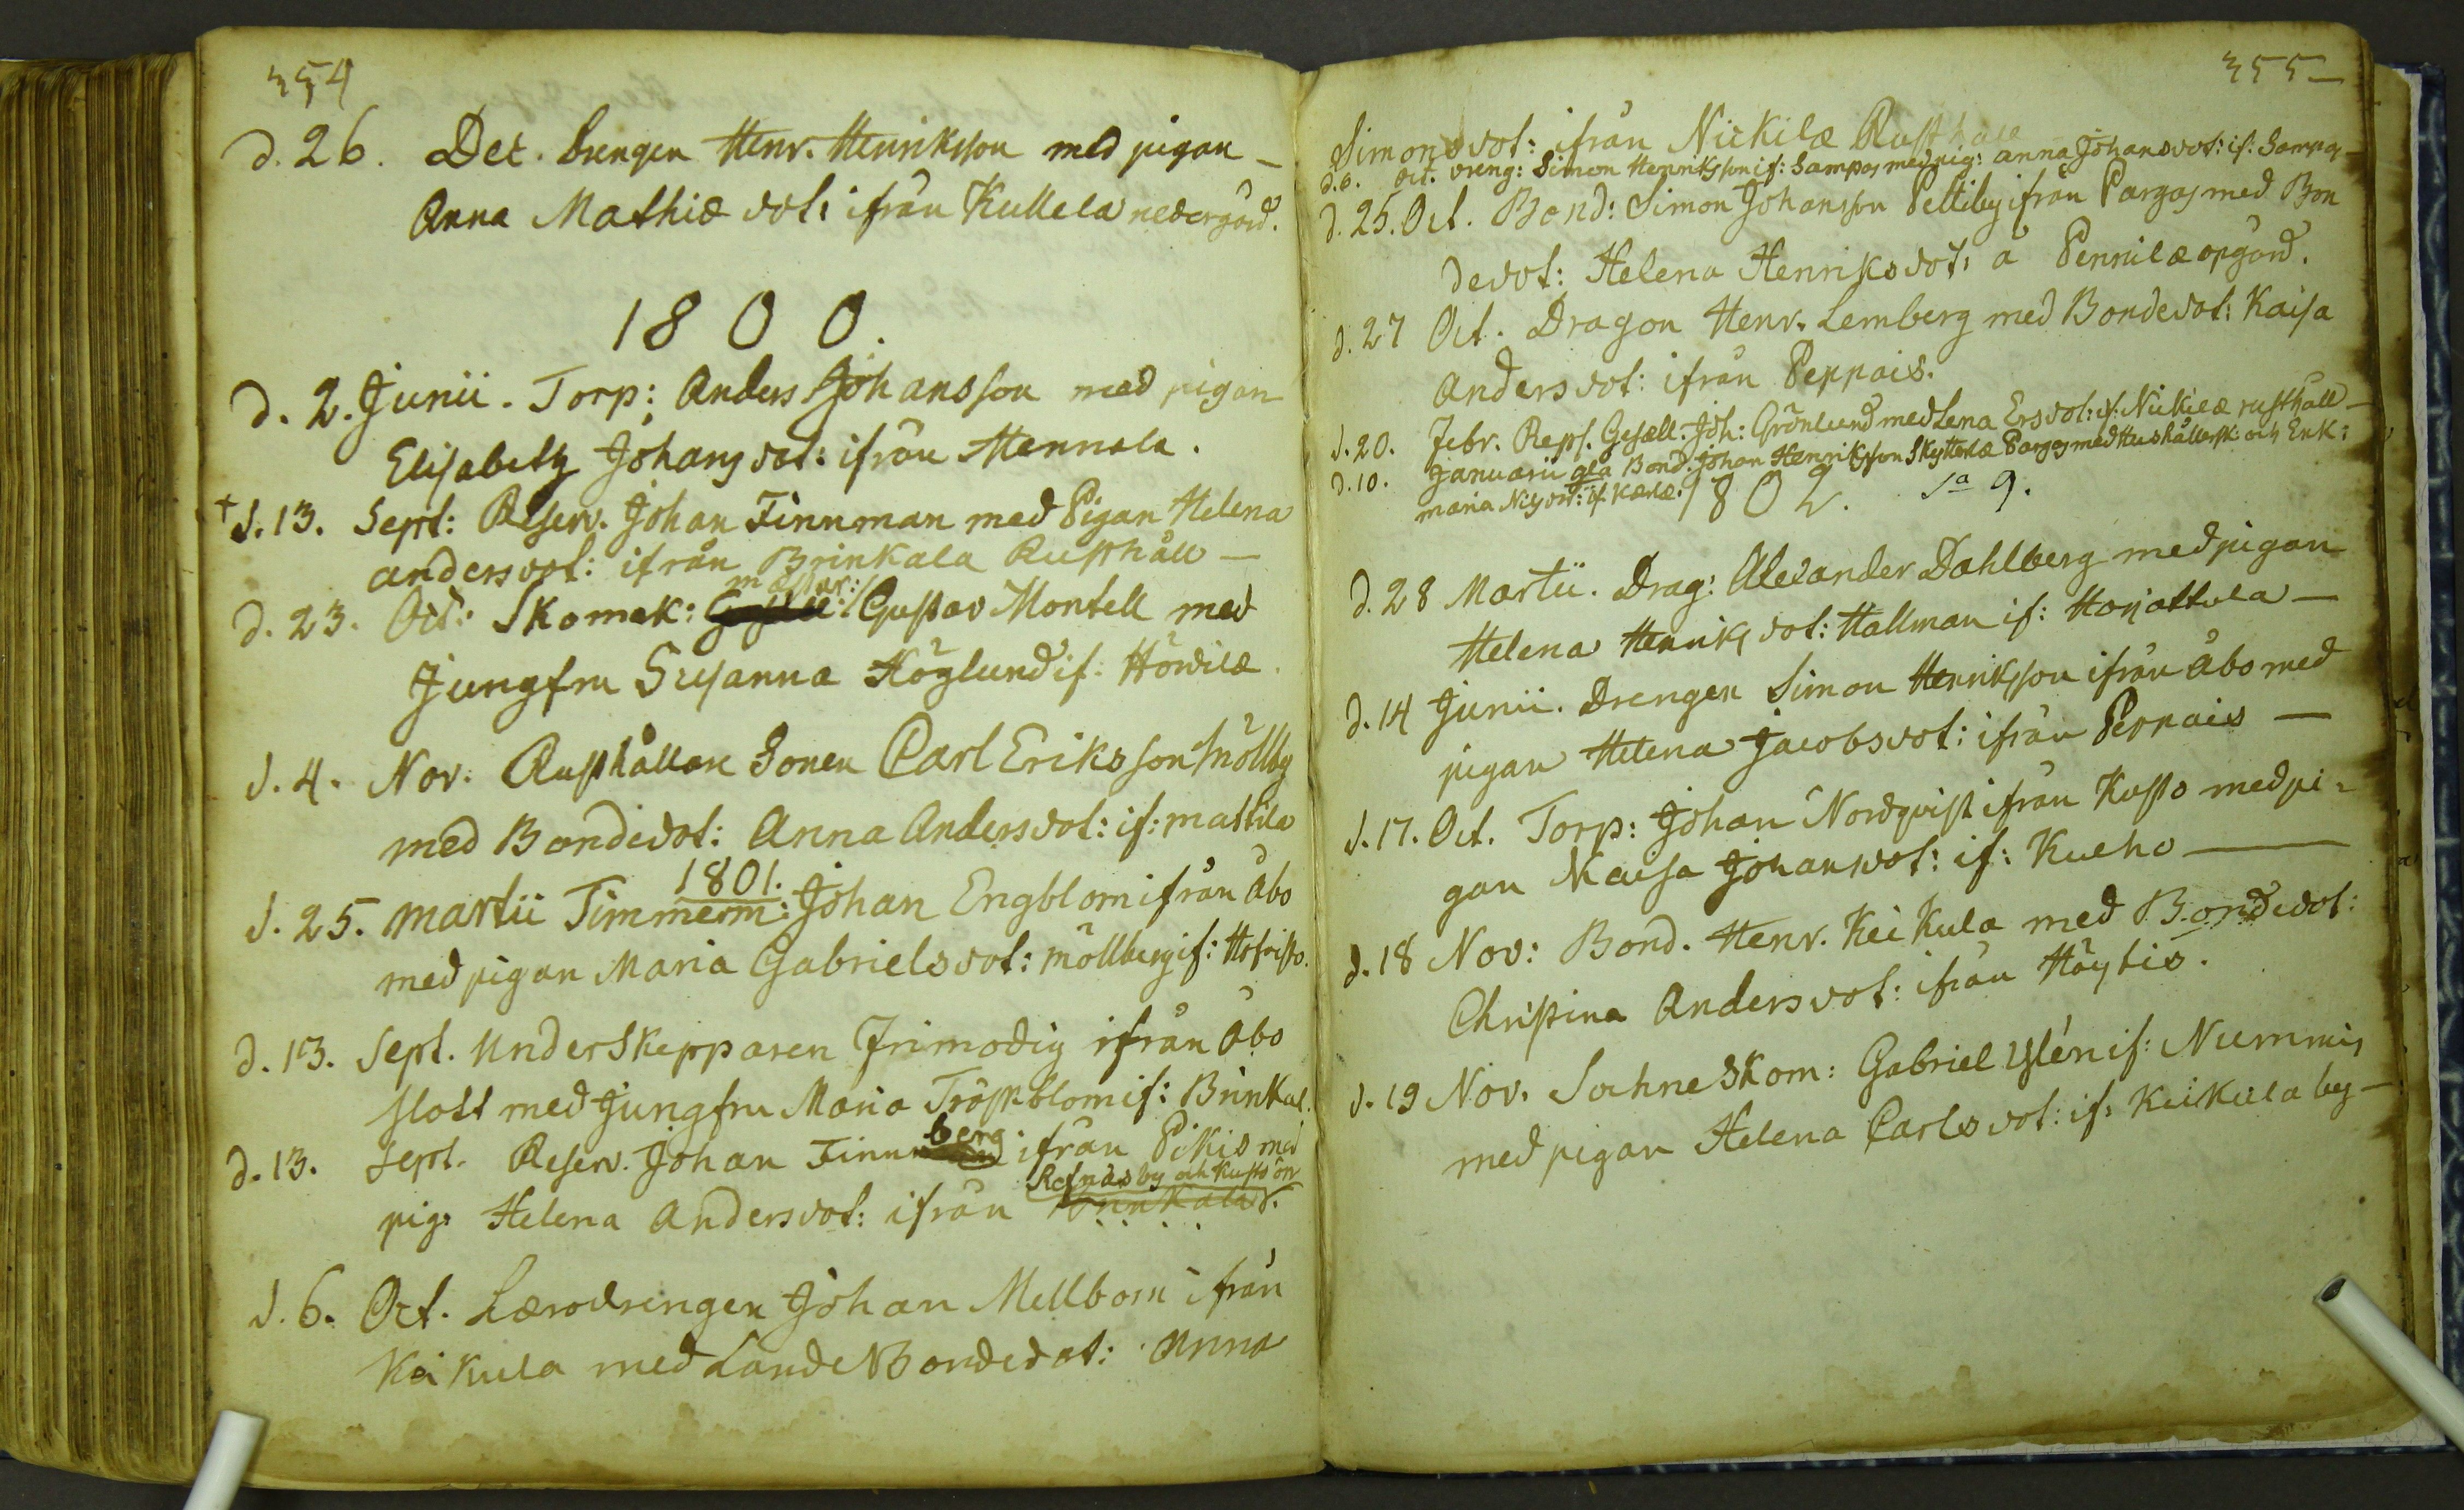 354
d. 26. Dec. Drengen Henr. Henriksson med pigan –
Anna Mathiæ dot: ifrån Kullela nedergård.
1800.
d. 2. Junii. Torp: Anders Johansson med pigan
Elisabeth Johansdot: ifrån Mennala.
+ d. 13. Sept: Reserv. Johan Finnman med Pigan Helena
andersdot: ifrån Brinkala Rusthåll –
mästar:
d. 23. Oct: Skomak: Gustav Montell med
Jungfru Susanna Höglund if. Höwilæ.
d. 4. Nov. Rusthållare Sonen Carl Eriksson Möllby
med Bondedot: Anna Andersdot: if: mattila
1801.
d. 25. Martii Timmerm: Johan Engblom ifrån Åbo
med pigan Maria Gabrielsdot: Möllberg if:
d. 13. Sept. Underskepparen Frimodig ifrån Åbo
slott med Jungfru Maria if: Brinkal.
berg
d. 13. Sept. Reserv. Johan Finnman ifrån Pikis med
Refnäs by och Kustö ön
pig: Helena Andersdot: ifrån Brinkala.
d. 6. Oct. Lærodrengen Johan Mellbom ifrån
Keikula med LandtBondedot: Anna
355
Simonsdot: ifrån Nickilæ Rusthåll
d. 6. Oct. Dreng: Simon Henriksson if: Sampas med pig: Anna Johansdot: if: Sampas –
d. 25. Oct. Bond: Simon Johansson Peltiby ifrån Pargas med Bon
dedot: Helena Henriksdot: å Pennilæ opgård.
d. 27 Oct. Dragon Henr. Lemberg med Bondedot: Kaisa
Andersdot: ifrån Peppois.
d. 20. Febr. Gesæll. Joh: Grönlund med Lena Ersdot: if: Nickilæ rusthåll –
d. 10. Januarii Bond. Johan Henriksson Skytterlæ Pargas med Hushållersk: och Enk:
maria Nilsdot: if.
1802. Sa 9.
d. 28 Martii. Drag: Alexander Dahlberg med pigan
Helena Henriks dot: Hallman if: Harjattula –
d. 14 Junii. Drengen Simon Henriksson ifrån Åbo med
pigan Helena Jacobsdot: ifrån Peppois –
d. 17. Oct. Torp: Johan Nordqvist ifrån Kusto med pi-
gan Kaisa Johansdot: if: Kueho –
d. 18 Nov: Bond. Henr. Keikula med Bondedot:
Christina Andersdot: ifrån Höytis.
d. 19 Nov. Sochneskom: Gabriel Ylén if: Nummis
med pigan Helena Carlsdot: if: Keikula by –